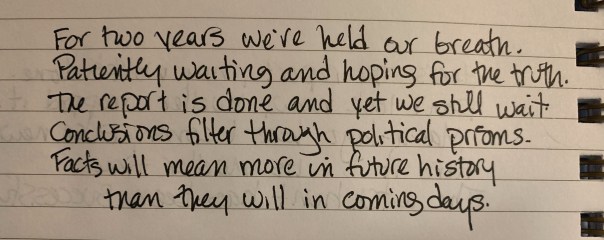 For two years we've held our breath.
Patiently waiting and hoping for the truth.
The report is done and yet we still wait.
Conclusions filter through political prisms.
Facts will mean more in future history
than they will in coming days.